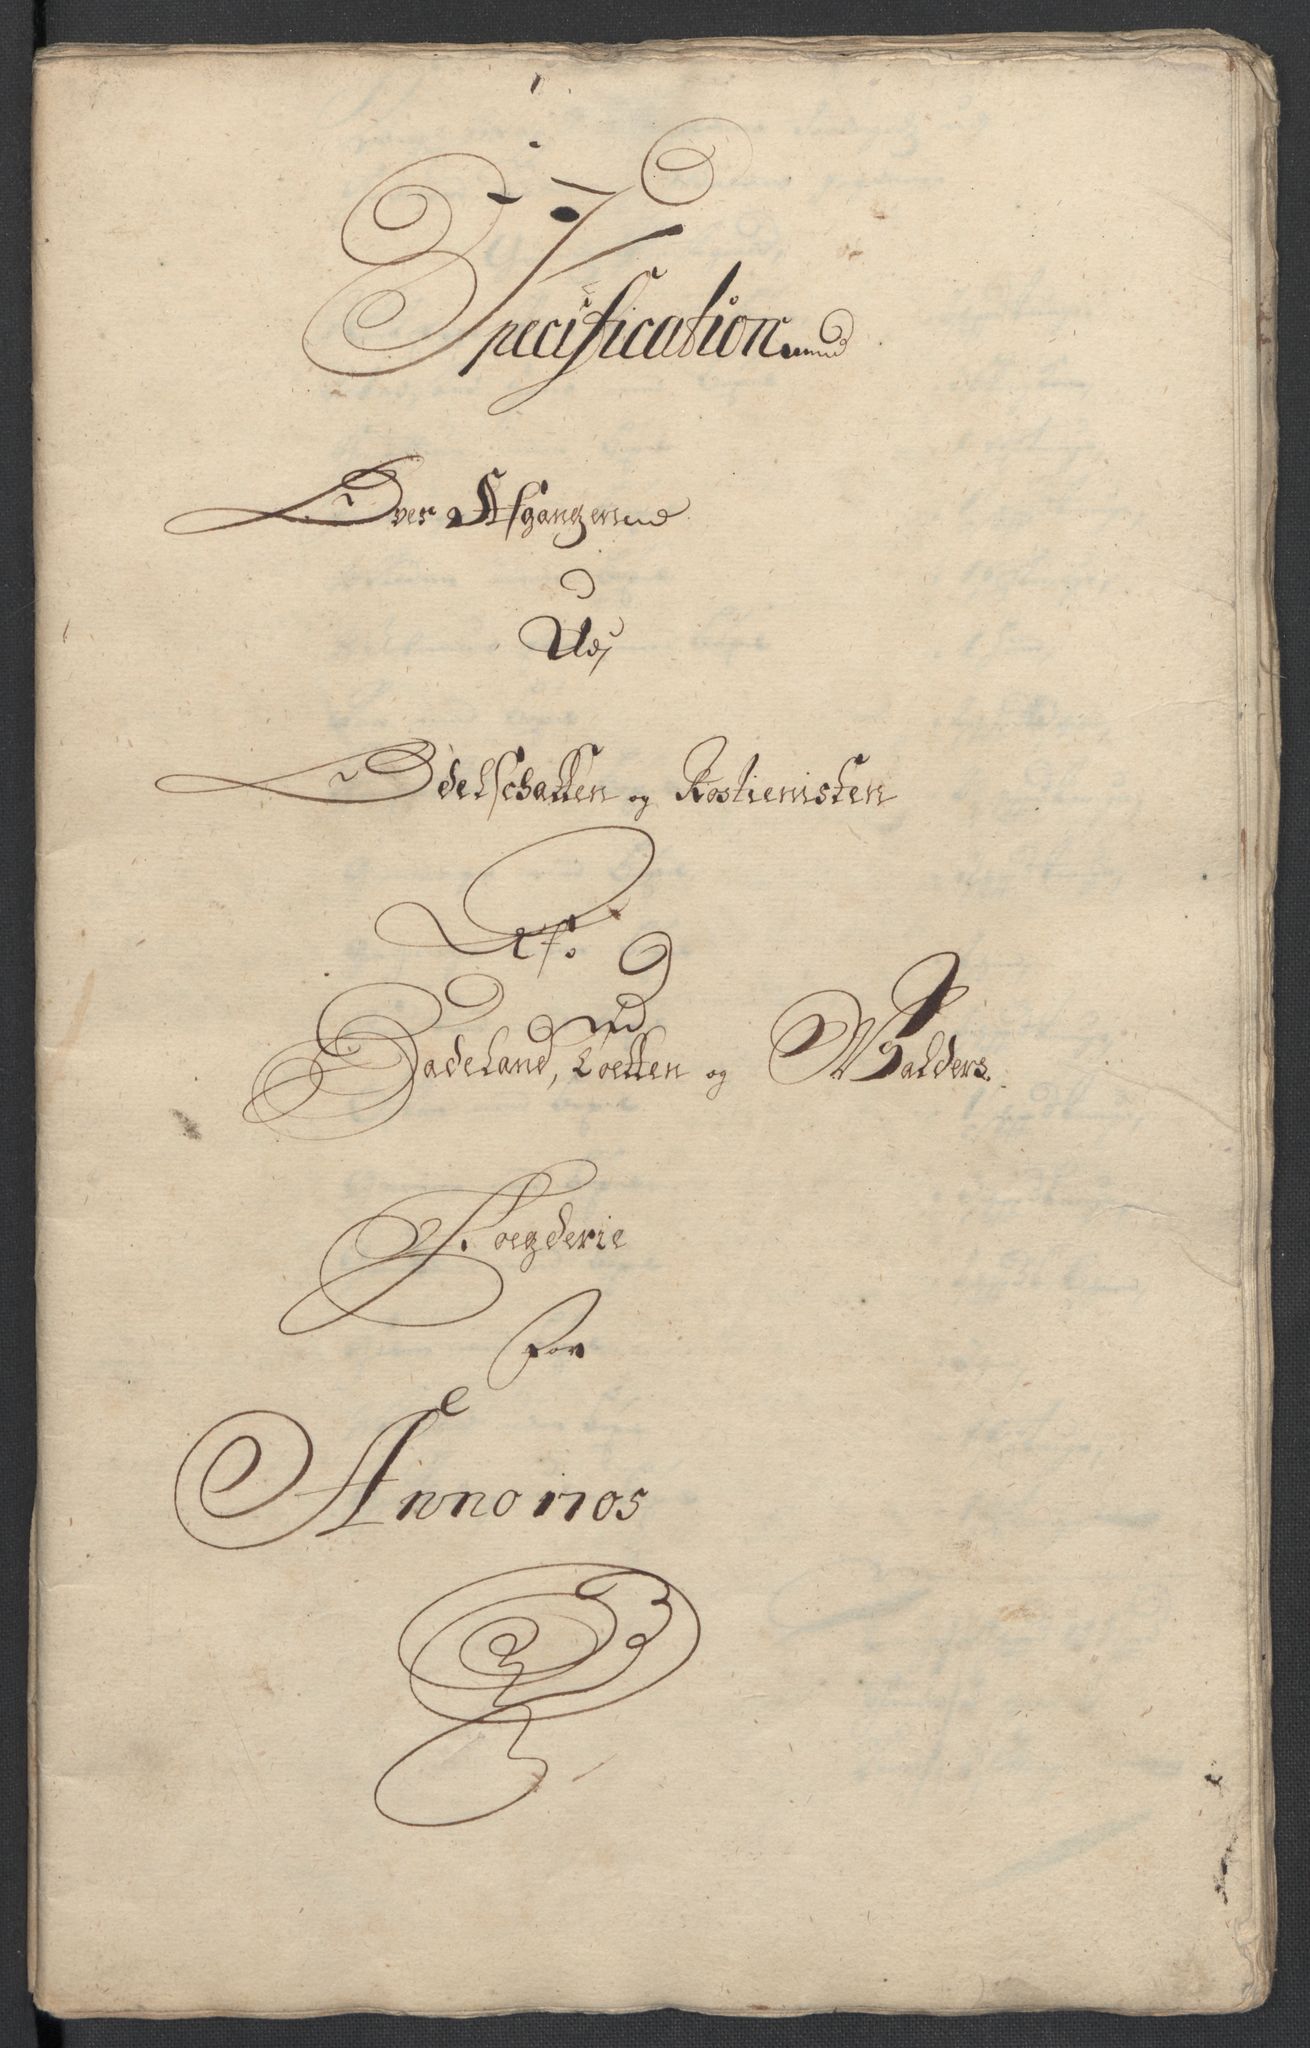 Specification
Over Afgangerne
Udj
Odelschatten og Rostienisten
Af
Hadeland, Toetten og Walders
Foegderie
For
Anno 1705